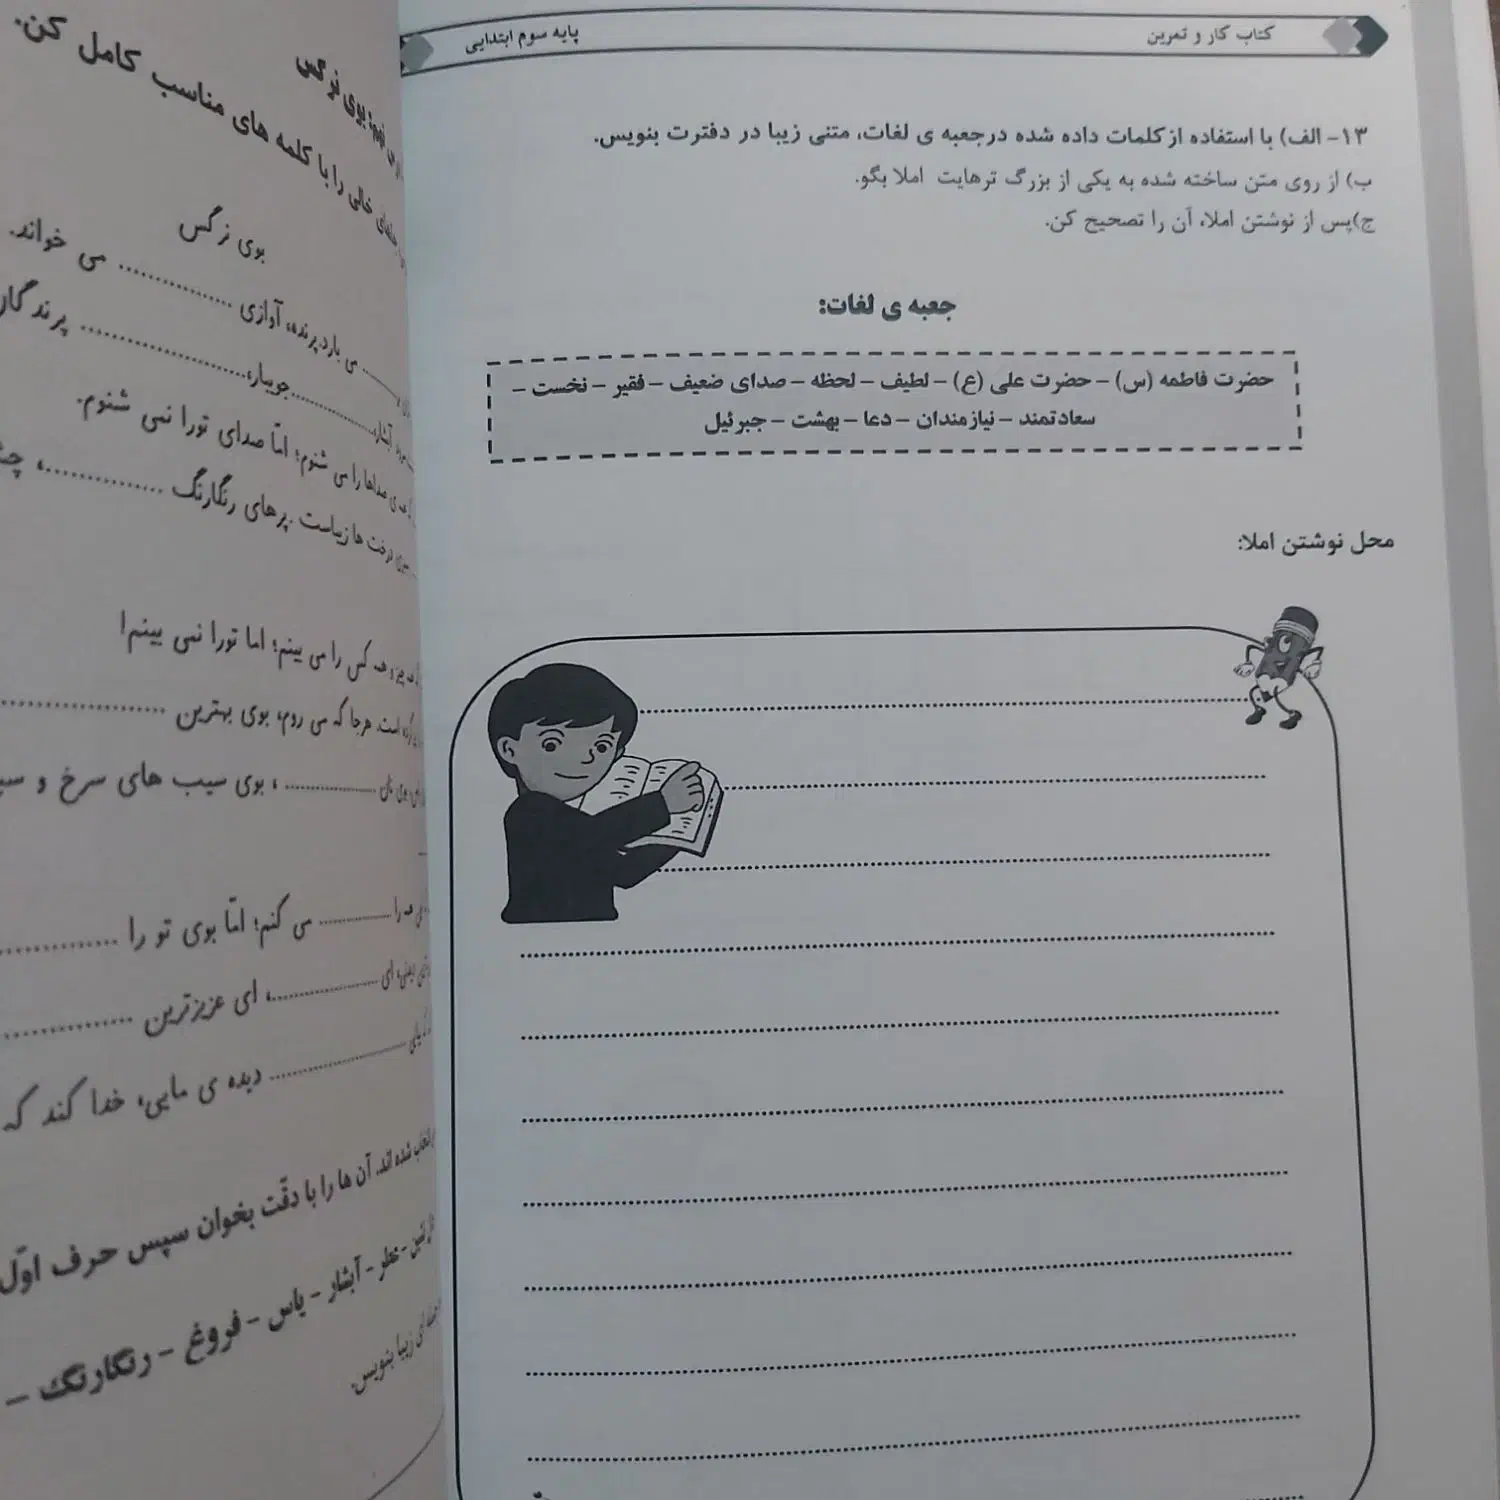 کتاب کار و تمرین
پایه سوم ابتدایی
۱۳- الف) با استفاده از کلمات داده شده درجعبه ی لغات، متنی زیبا در دفترت بنویس.
ب) از روی متن ساخته شده به یکی از بزرگ ترهایت املا بگو.
ج)پس از نوشتن املا، آن را تصحیح کن.
جعبه ی لغات:
حضرت فاطمه (س) – حضرت علی (ع) – لطیف – لحظه – صدای ضعیف – فقیر – نخست –
سعادتمند – نیازمندان – دعا – بهشت – جبرئیل
محل نوشتن املا:
بوی نرگس
خالی را با کلمه های مناسب کامل کن.
بوی نرگس
می بارد.پرنده، آوازی .............. می خواند.
آبشار، .............. جویبار، .............. پرندگار
صداها را می شنوم؛ امّا صدای تورا نمی شنوم.
درخت ها زیباست .پرهای رنگارنگ ..............، چش
چیز و همه کس را می بینم؛ اما تورا نمی بینم!
است. هرجا که می روم، بوی بهترین ..............
بوی نان ..............، بوی سیب های سرخ و سی
را .............. می کنم؛ امّا بوی تو را ..............
ای ..............، ای عزیزترین ..............
.............. دیده ی مایی، خدا کند که
شده اند. آن ها را با دقّت بخوان سپس حرف اوّل
– آبشار – یاس – فروغ – رنگارنگ –
زیبا بنویس.